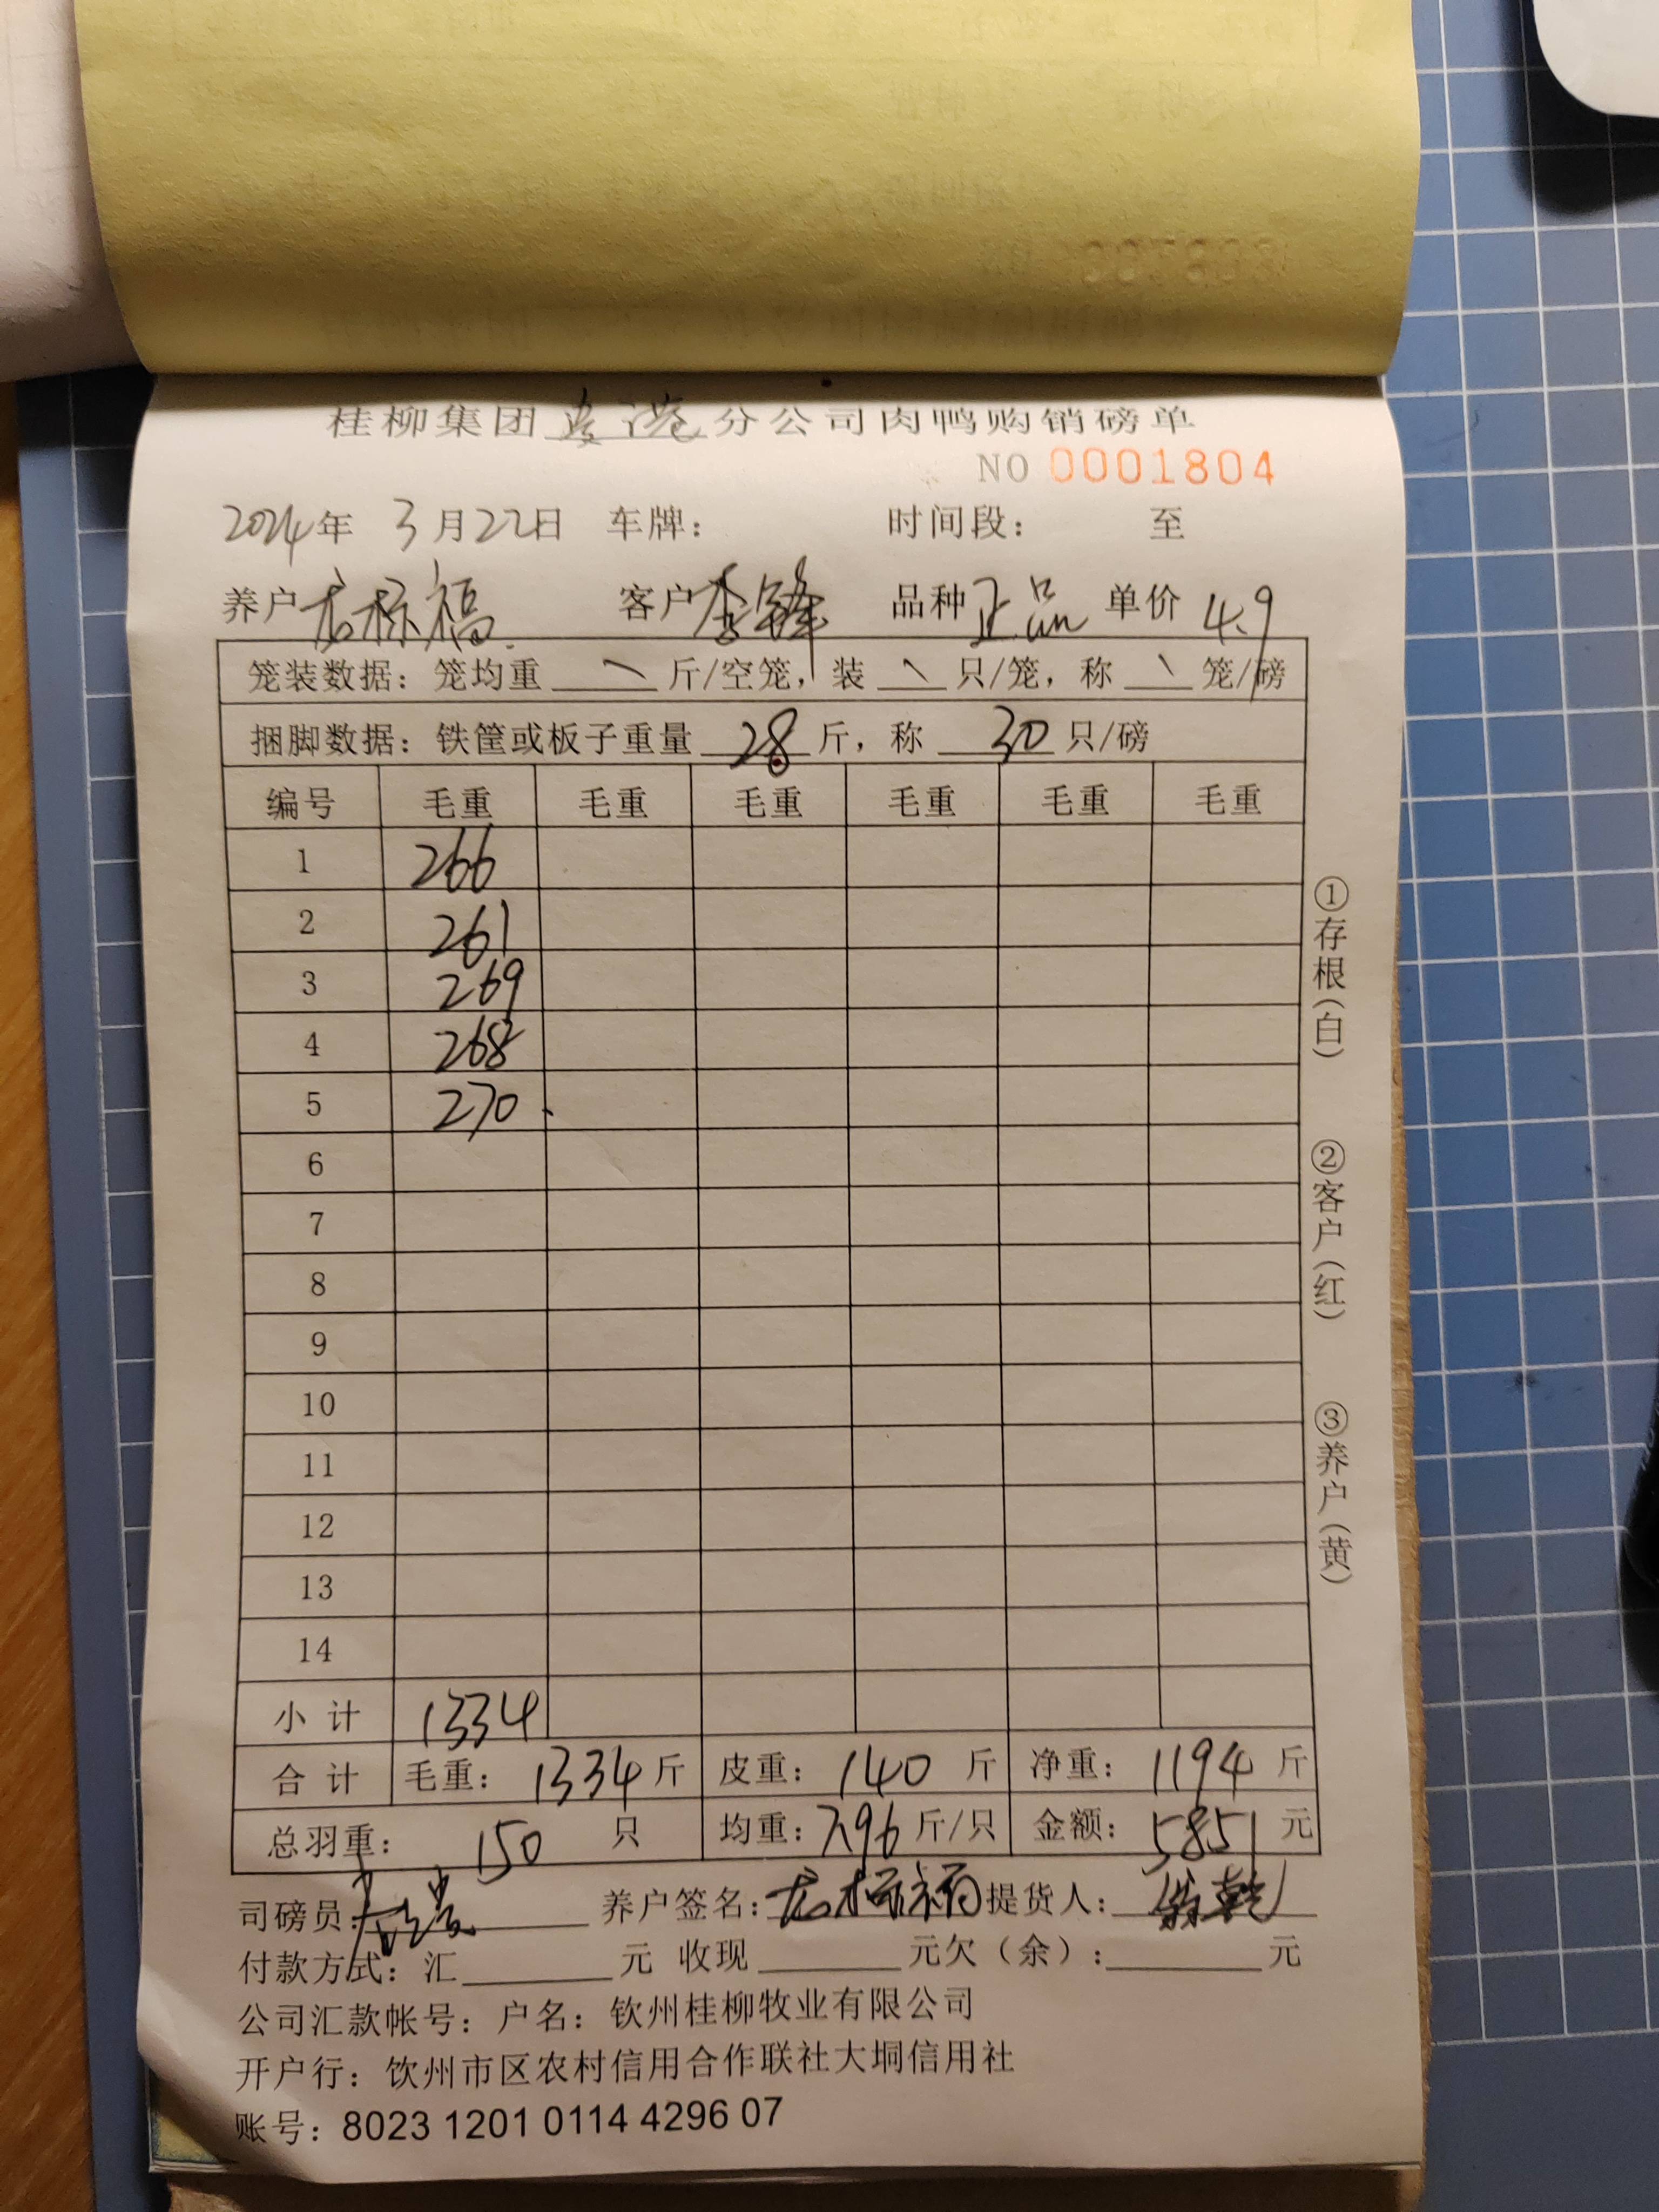 桂柳集团贵港分公司肉鸭购销磅单
NO 0001804
2024年 3月22日 车牌： 时间段： 至
养户 标福 客户 李锋 品种 正品 单价 4.9
笼装数据：笼均重 \ 斤/空笼，装 \ 只/笼，称 \ 笼/磅
捆脚数据：铁筐或板子重量 28 斤，称 30 只/磅
编号 毛重 毛重 毛重 毛重 毛重 毛重
1 266
2 261
3 269
4 268
5 270
6
7
8
9
10
11
12
13
14
小计 1334
合计 毛重：1334斤 皮重：140斤 净重：1194斤
总羽重：150只 均重：7.96斤/只 金额：5851元
司磅员： 养户签名： 标福 提货人：
付款方式：汇 元 收现 元欠（余）： 元
公司汇款帐号：户名：钦州桂柳牧业有限公司
开户行：饮州市区农村信用合作联社大垌信用社
账号：8023 1201 0114 4296 07
①存根（白）
②客户（红）
③养户（黄）